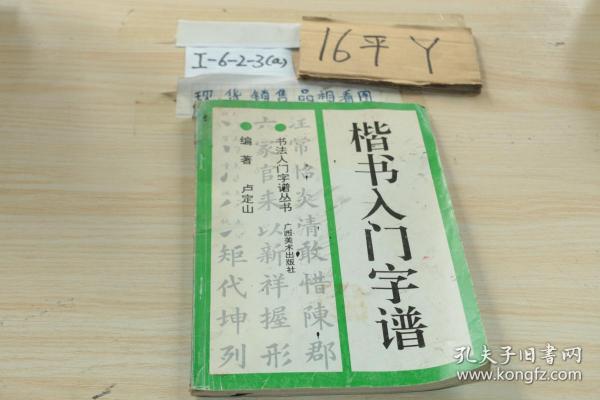 I-6-2-3(a)
16平 丫
现货销售 品相看图
楷书入门字谱
书法入门字谱丛书
广西美术出版社
编著 卢定山
清敢惜陳郡
家官来以新祥握形
矩代坤列
孔夫子旧书网
www.kongfz.com